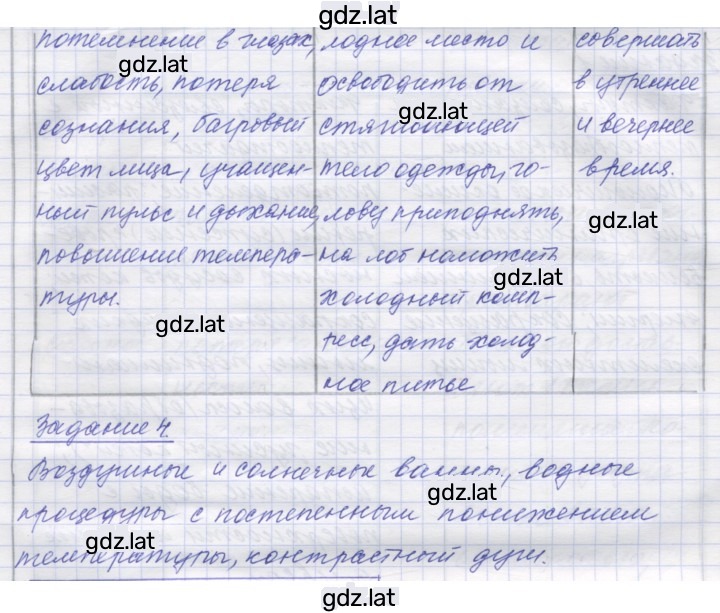 gdz.lat
потемнение в глазах, лодное место и совершать
gdz.lat
слабость, потеря освободить от в утреннее
gdz.lat
сознания, багровый стягивающей и вечернее
цвет лица, учащен- тело одежды, го- время.
ный пульс и дыхание, лову приподнять,
gdz.lat
повышение темпера- на лоб наложить
gdz.lat
туры. холодный комп-
gdz.lat
ресс, дать холод-
ное питье
Задание 4.
Воздушные и солнечные ванны, водные
gdz.lat
процедуры с постепенным понижением
gdz.lat
температуры, контрастный душ.
gdz.lat